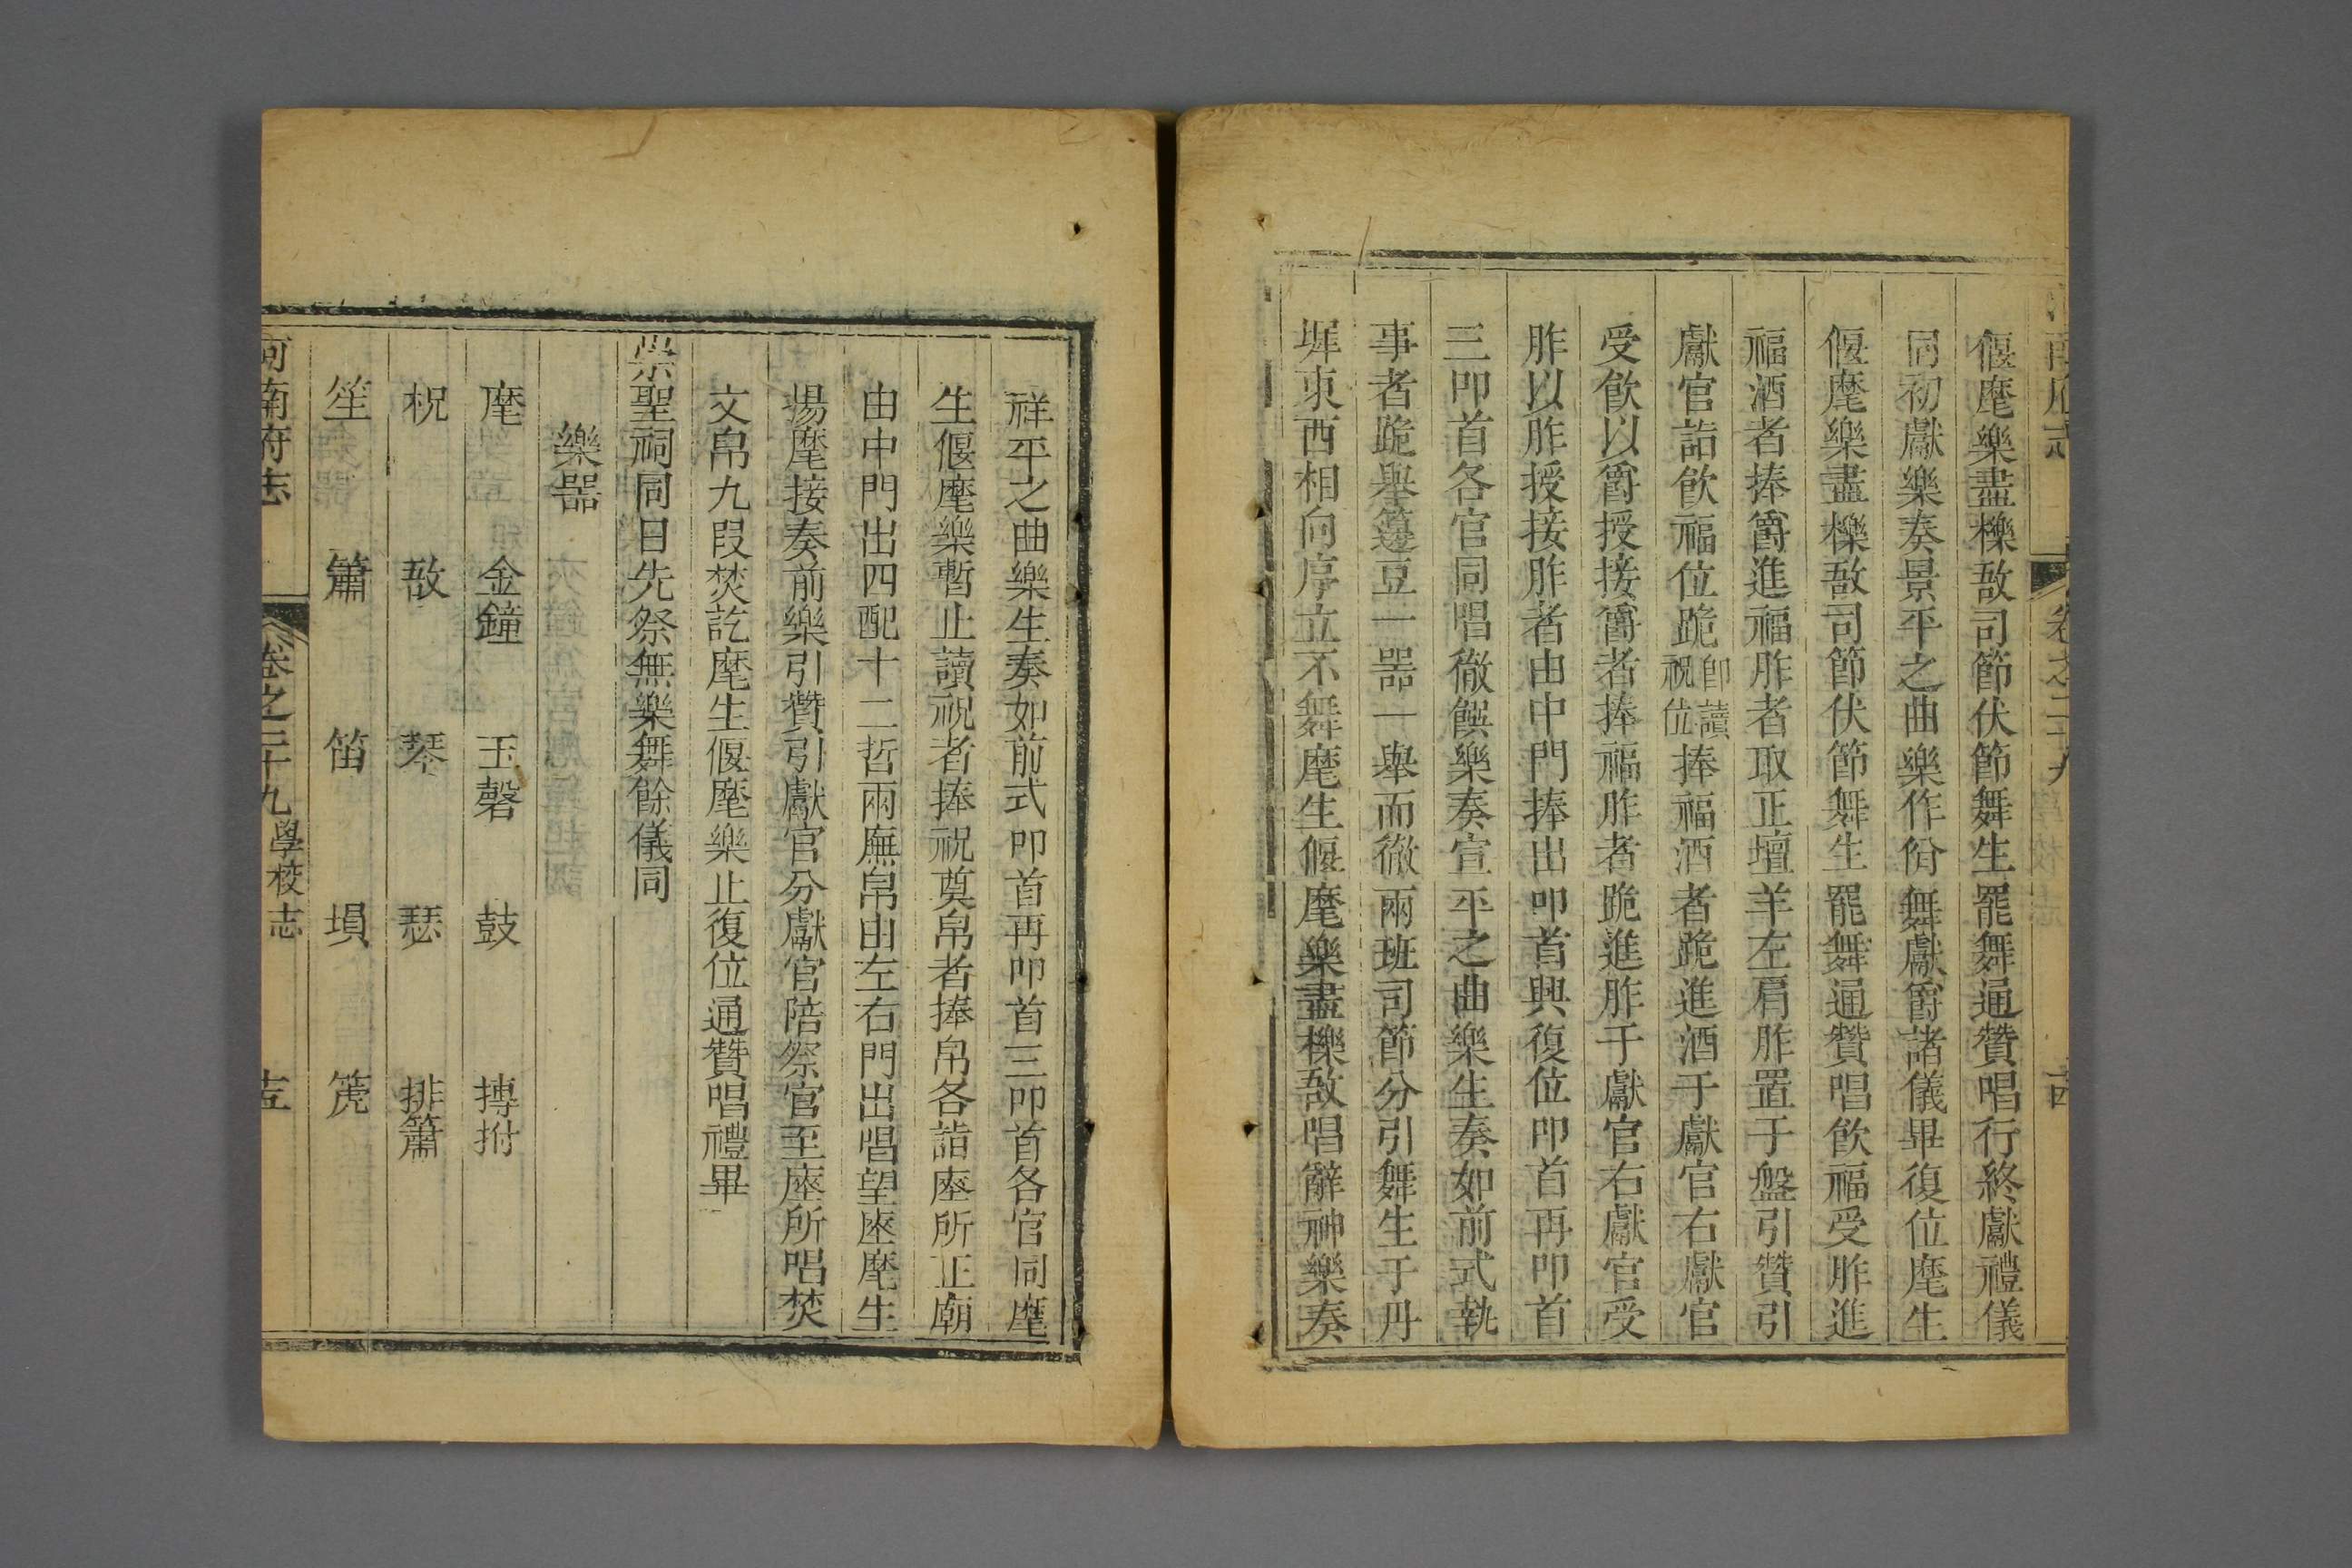 偃麾樂盡櫟敔司節伏節舞生罷舞通贊唱行終獻禮儀
同初獻樂奏景平之曲樂作佾舞獻爵諸儀畢復位麾生
偃麾樂盡櫟敔司節伏節舞生罷舞通贊唱飲福受胙進
福酒者捧爵進福胙者取正壇羊左肩胙置于盤引贊引
獻官詣飲福位跪卽讀祝位捧福酒者跪進酒于獻官右獻官
受飲以爵授接爵者捧福胙者跪進胙于獻官右獻官受
胙以胙授接胙者由中門捧出叩首興復位叩首再叩首
三叩首各官同唱徹饌樂奏宣平之曲樂生奏如前式執
事者跪舉籩豆一器一舉而徹兩班司節分引舞生于丹
墀東西相向序立不舞麾生偃麾樂盡櫟敔唱辭神樂奏
祥平之曲樂生奏如前式叩首再叩首三叩首各官同麾
生偃麾樂暫止讀祝者捧祝奠帛者捧帛各詣座所正廟
由中門出四配十二哲兩廡帛由左右門出唱望瘞麾生
揚麾接奏前樂引贊引獻官分獻官陪祭官至座所唱焚
文帛九段焚訖麾生偃麾樂止復位通贊唱禮畢
崇聖祠同日先祭無樂舞餘儀同
樂器
麾 金鐘 玉磬 鼓 搏拊
柷 敔 琴 瑟 排簫
笙 簫 笛 塤 篪
河南府志 卷之二十九 學校志